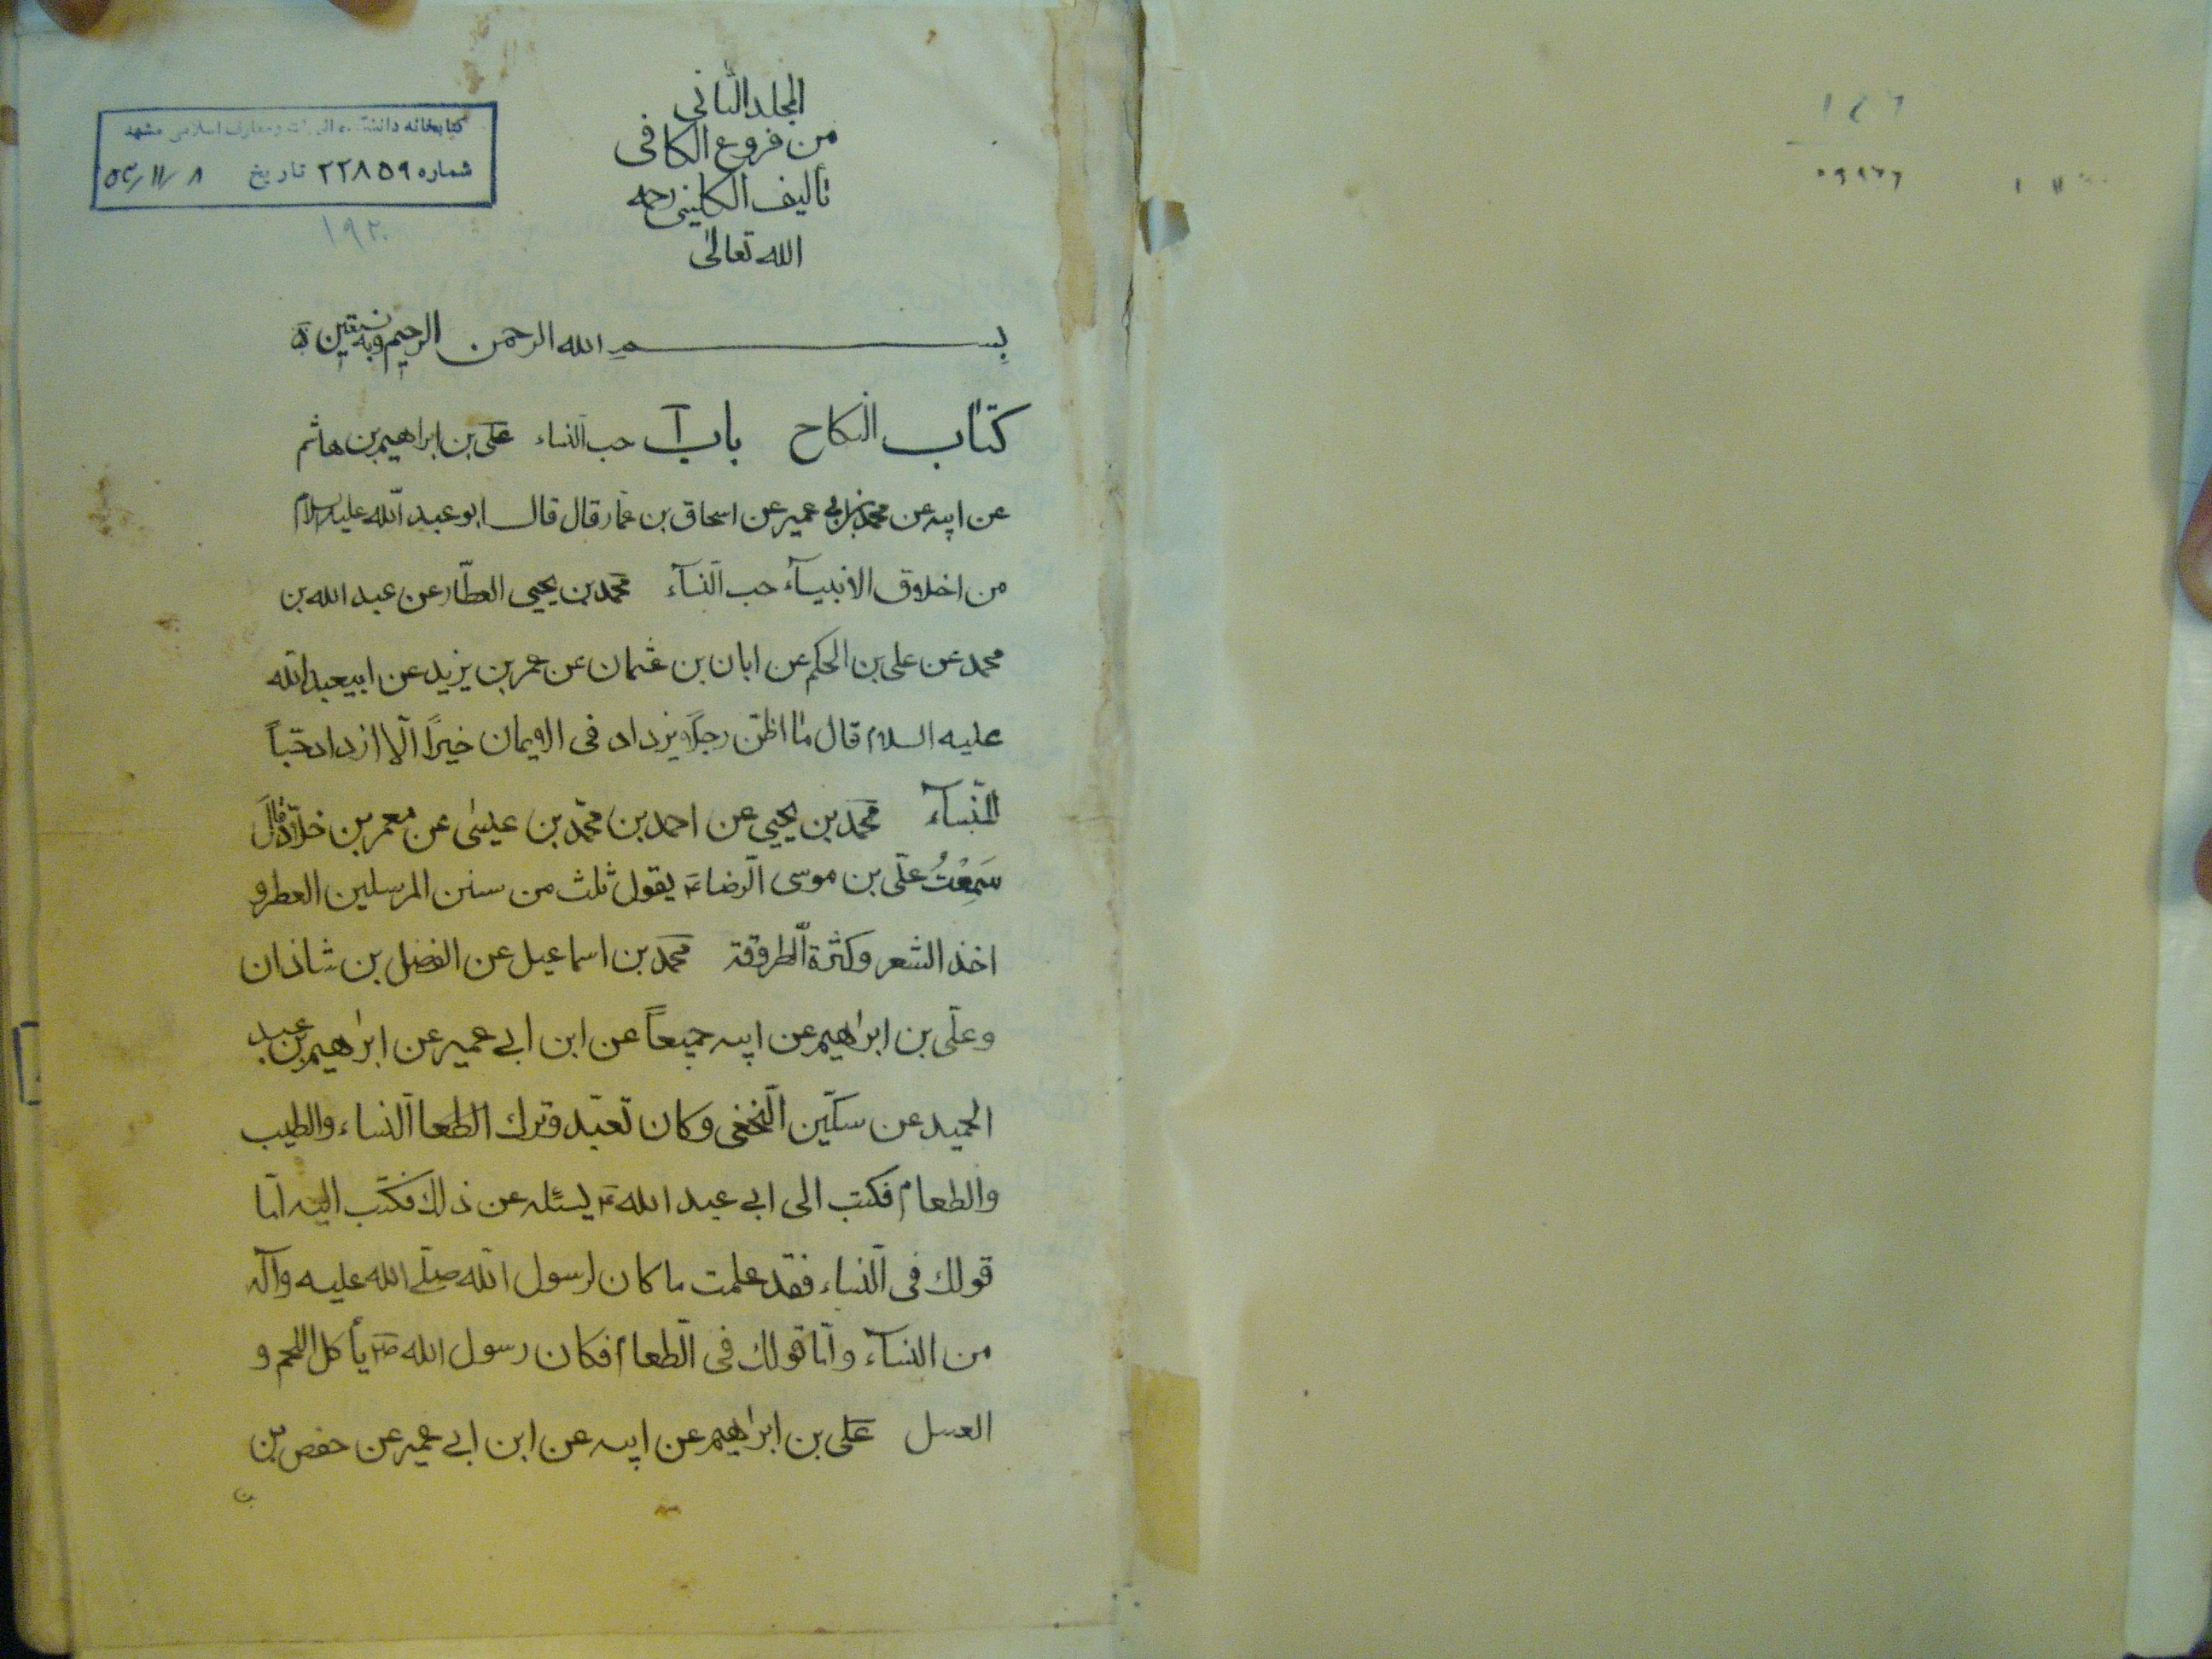 المجلد الثاني
من فروع الكافى
تأليف الكلينى رحمه
الله تعالى
كتابخانه دانشكده الهيات و معارف اسلامى مشهد
شماره ٢٢٨٥٩ تاريخ ٨ /١١/ ٥٣
١٩٢٠
بسم الله الرحمن الرحيم وبه نستعين
كتاب النكاح باب حب النساء على بن ابراهيم بن هاشم
عن ابيه عن محمد بن ابى عمير عن اسحاق بن عمار قال قال ابو عبد الله عليه السلام
من اخلاق الانبيآء حب النسآء محمد بن يحيى العطار عن عبد الله بن
محمد عن على بن الحكم عن ابان بن عثمان عن عمر بن يزيد عن ابيعبد الله
عليه السلام قال ما اظن رجلا يزداد فى الايمان خيرًا الا ازداد حبًا
للنسآء محمد بن يحيى عن احمد بن محمد بن عيسى عن معمر بن خلاد قال
سَمِعْتُ على بن موسى الرضا ع يقول ثلث من سنن المرسلين العطر و
اخذ الشعر وكثرة الطروقة محمد بن اسماعيل عن الفضل بن شاذان
وعلى بن ابراهيم عن ابيه جميعاً عن ابن ابى عمير عن ابراهيم بن عبد
الحميد عن سكين النخعى وكان تعبد وترك الطعا النساء والطيب
والطعام فكتب الى ابى عبد الله ع يسئله عن ذلك فكتب اليه اما
قولك فى النساء فقد علمت ما كان لرسول الله صلى الله عليه وآله
من النسآء واما قولك فى الطعام فكان رسول الله ص يأكل اللحم و
العسل على بن ابراهيم عن ابيه عن ابن ابى عمير عن حفص بن